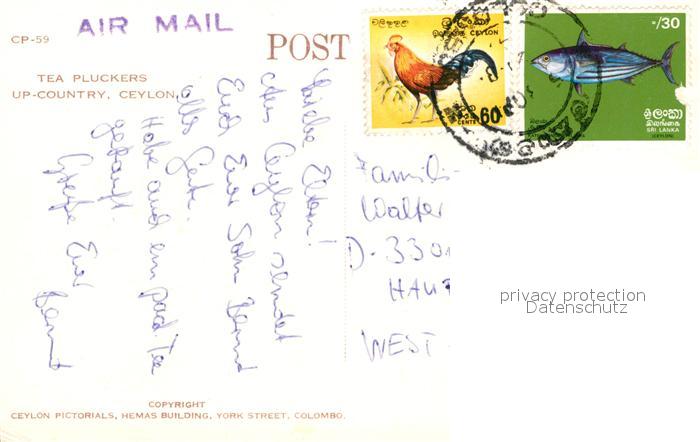 CP-59
AIR MAIL
POST
TEA PLUCKERS
UP-COUNTRY, CEYLON
Liebe Eltern!
Aus Ceylon sendet
Euch Euer Sohn Bernd
alles Gute.
Habe auch ein paar Tee
gekauft.
Grüße Euer
Bernd
Famili
Walter
D-3301
HAUS
WEST
60
CENTS
/30
ශ්‍රී ලංකා
இலங்கை
SRI LANKA
(CEYLON)
privacy protection
Datenschutz
COPYRIGHT
CEYLON PICTORIALS, HEMAS BUILDING, YORK STREET, COLOMBO.